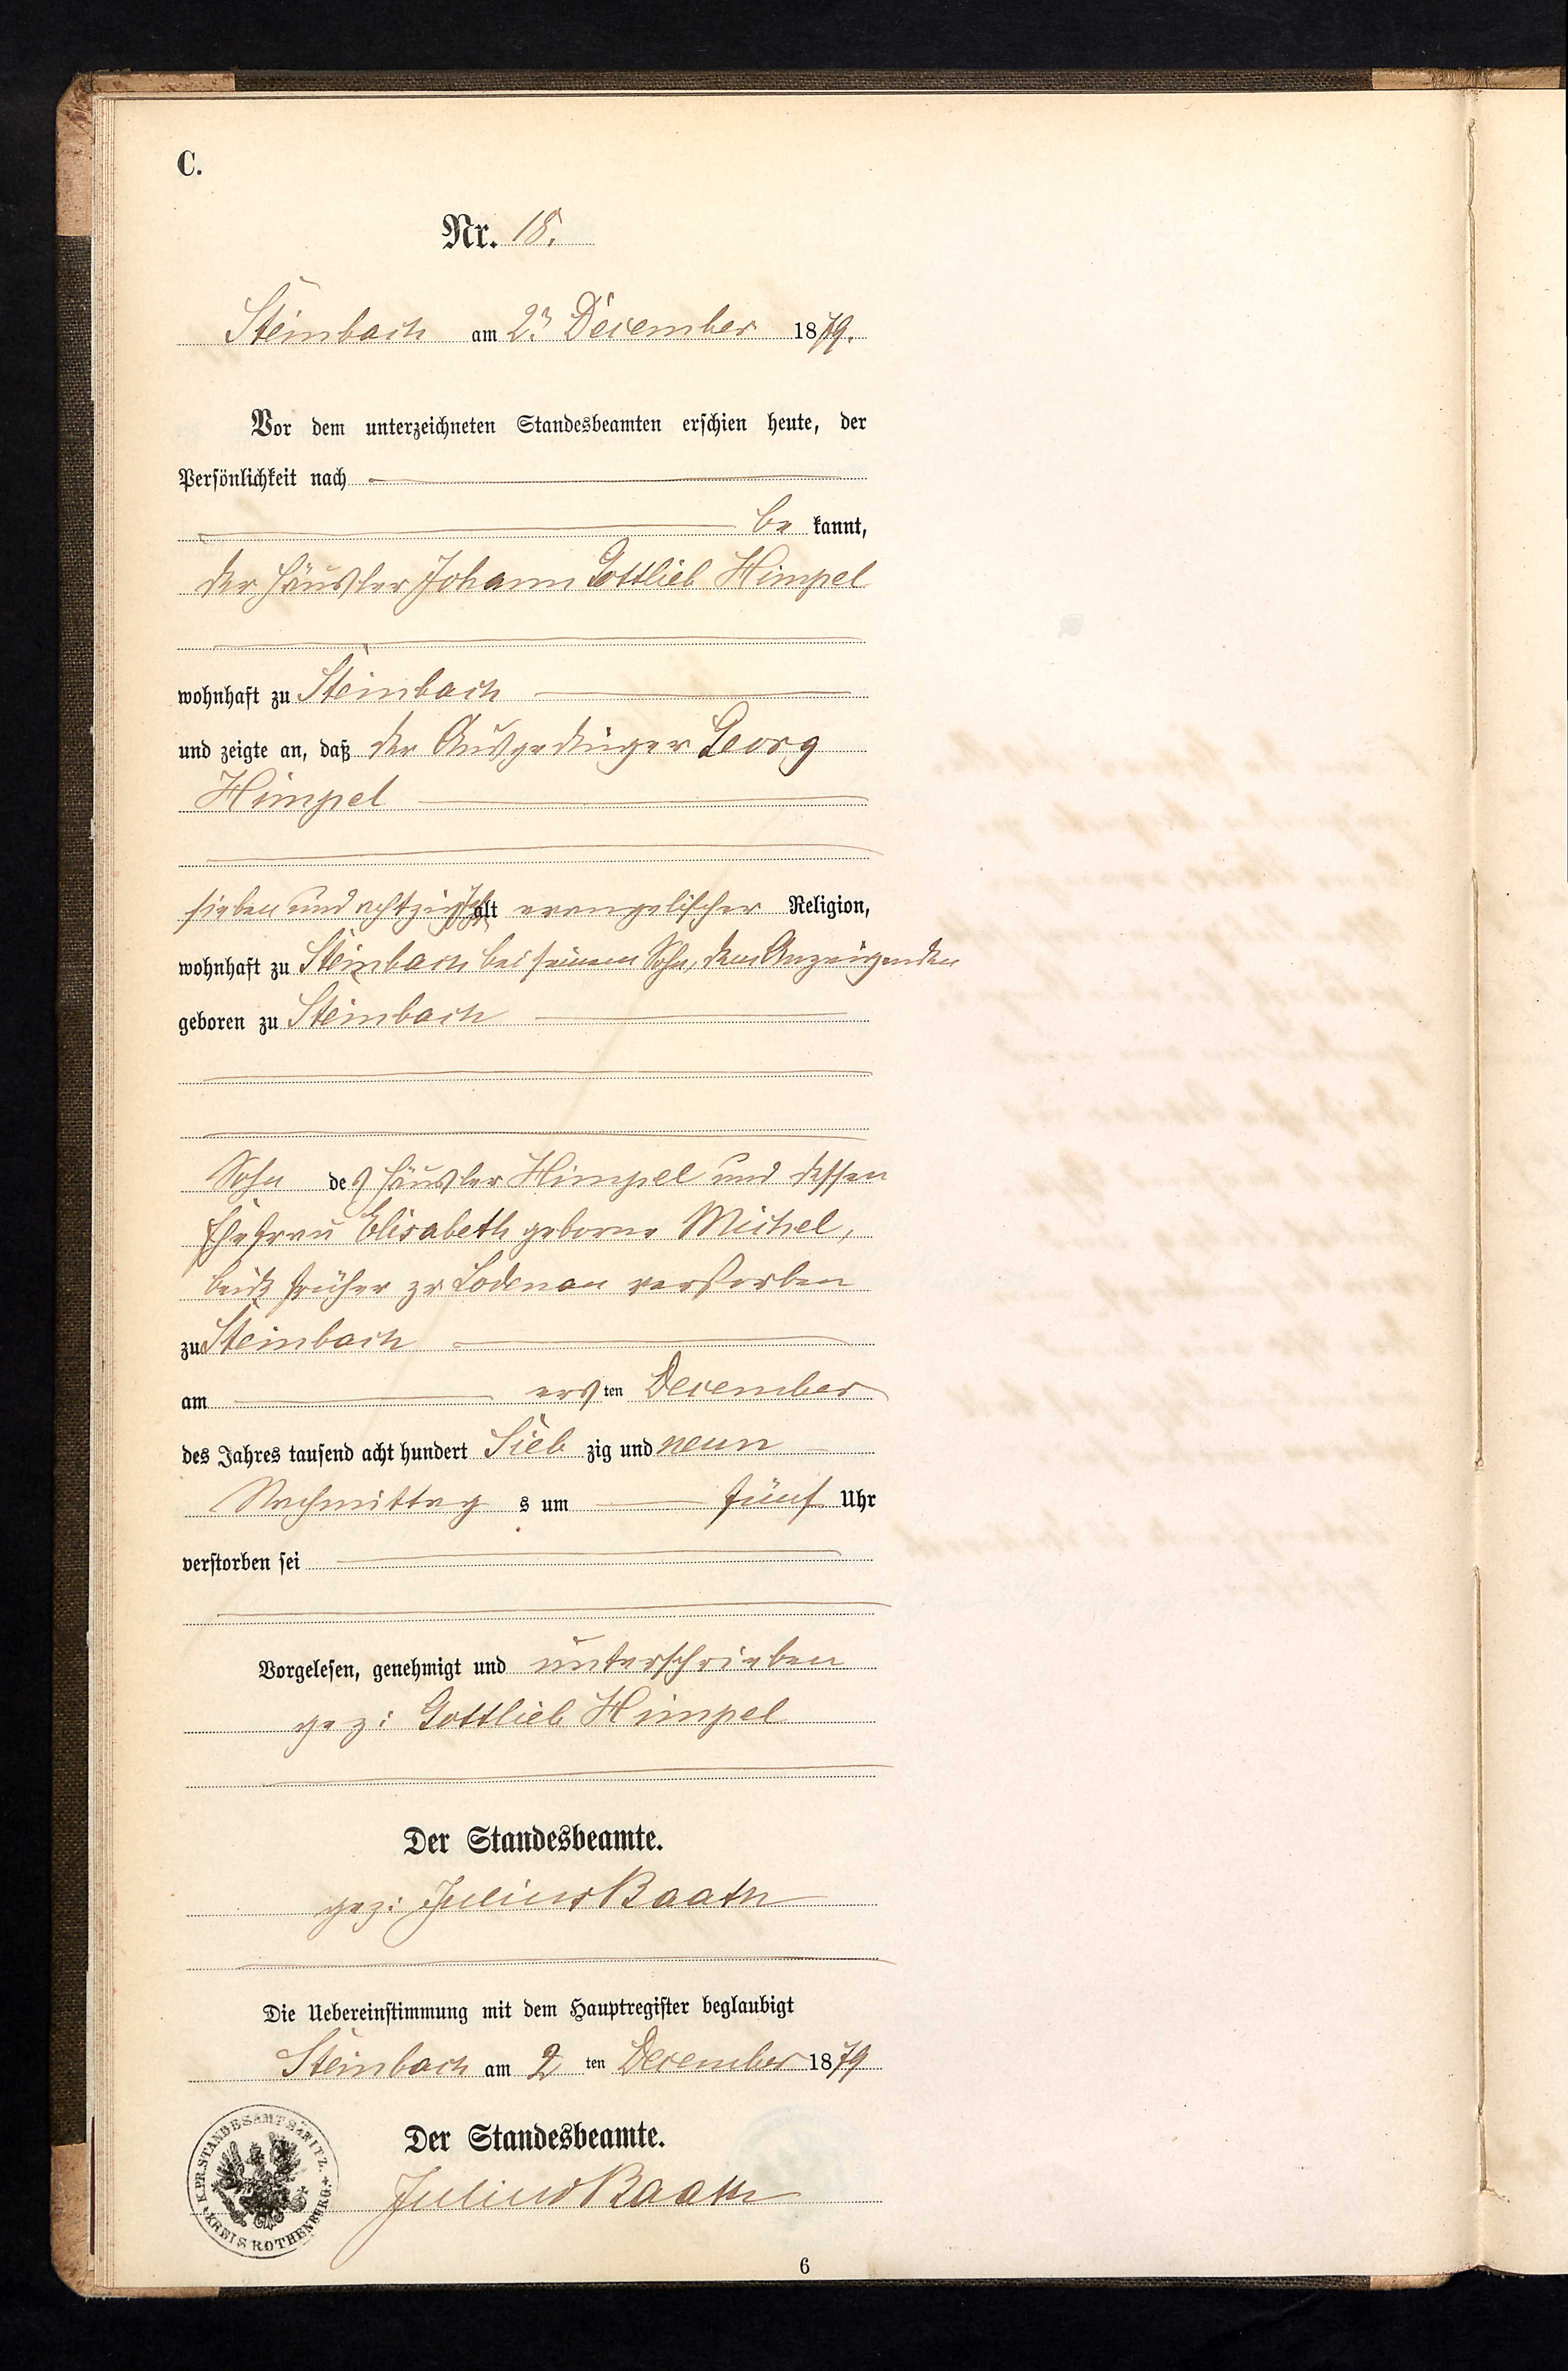 C.
Nr. 18.
Steinbach am 2. December 1879.
Vor dem unterzeichneten Standesbeamten erschien heute, der
Persönlichkeit nach
be kannt,
der Häusler Johann Gottlieb Himpel
wohnhaft zu Steinbach
und zeigte an, daß der Ausgedinger Georg
Himpel
sieben und achtzig alt evangelischer Religion,
wohnhaft zu Steinbach bei seinem Sohn, dem Anzeigenden
geboren zu Steinbach
Sohn des Häusler Himpel und dessen
Ehefrau Elisabeth geborne Michel,
beide früher zu Lodenau verstorben
zu Steinbach
am ersten December
des Jahres tausend acht hundert Sieb zig und neun
Nachmittag s um fünf Uhr
verstorben sei
Vorgelesen, genehmigt und unterschrieben
gez: Gottlieb Himpel
Der Standesbeamte.
gez: Julius
Die Uebereinstimmung mit dem Hauptregister beglaubigt
Steinbach am 2 ten December 1879
Der Standesbeamte.
Julius
K.PR.STANDESAMT SÄRITZ.
KREIS ROTHENBURG.
6